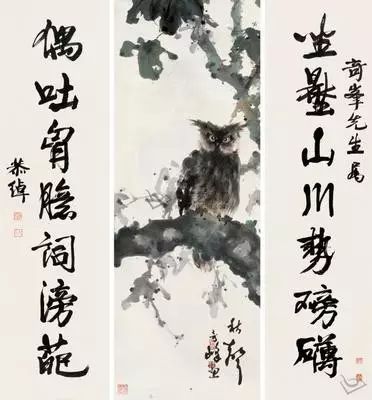 奇峯先生属
坐山川勢磅礴
秋聲
奇峰畫
偶吐胷臆詞滂葩
恭綽